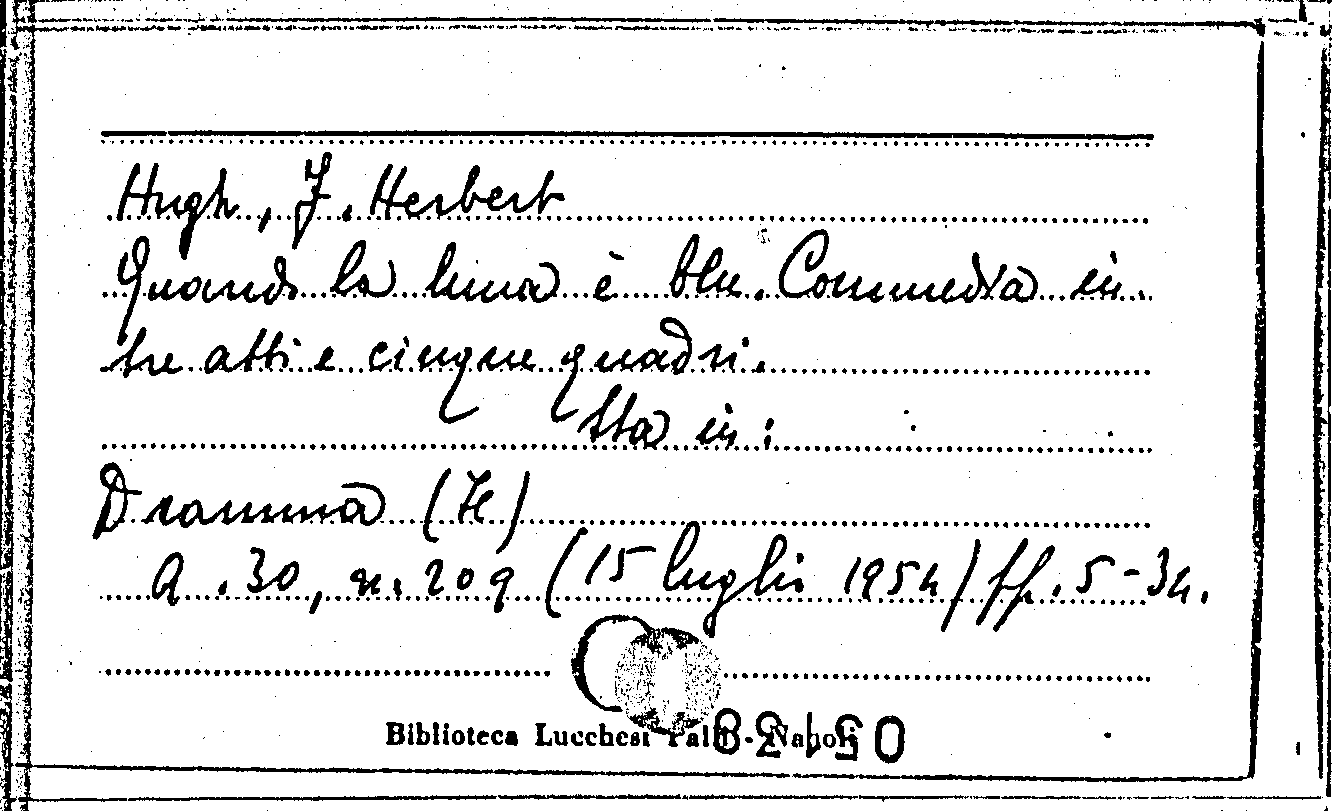 Hugh, J. Herbert
Quando la luna è blu. Commedia in
tre atti e cinque quadri.
Sta in:
Dramma (Il)
A. 30, n. 209 (15 luglio 1954) pp. 5-34.
Biblioteca Lucchesi Palli - Napoli